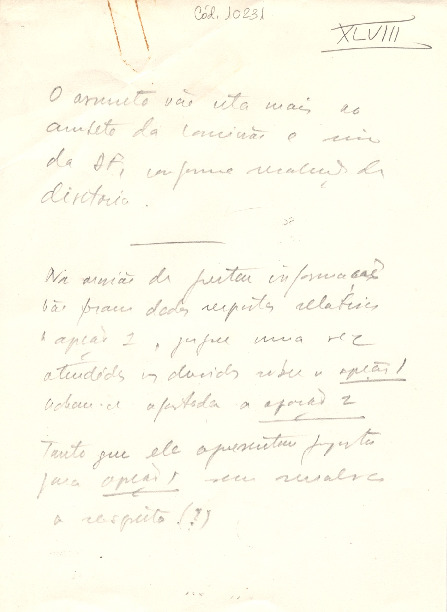 Cód. 10231
XLVIII
O assunto não está mais ao
âmbito da comissão e sim
da DF, conforme resolução da
diretoria.
Na ocasião de prestar informações
não foram dadas respostas relativas
a opção 2, porque uma vez
atendidas as dúvidas sobre a opção 1
achava-se afastada a opção 2
Tanto que ele apresentou proposta
para opção 1 sem ressalvas
a respeito (?)